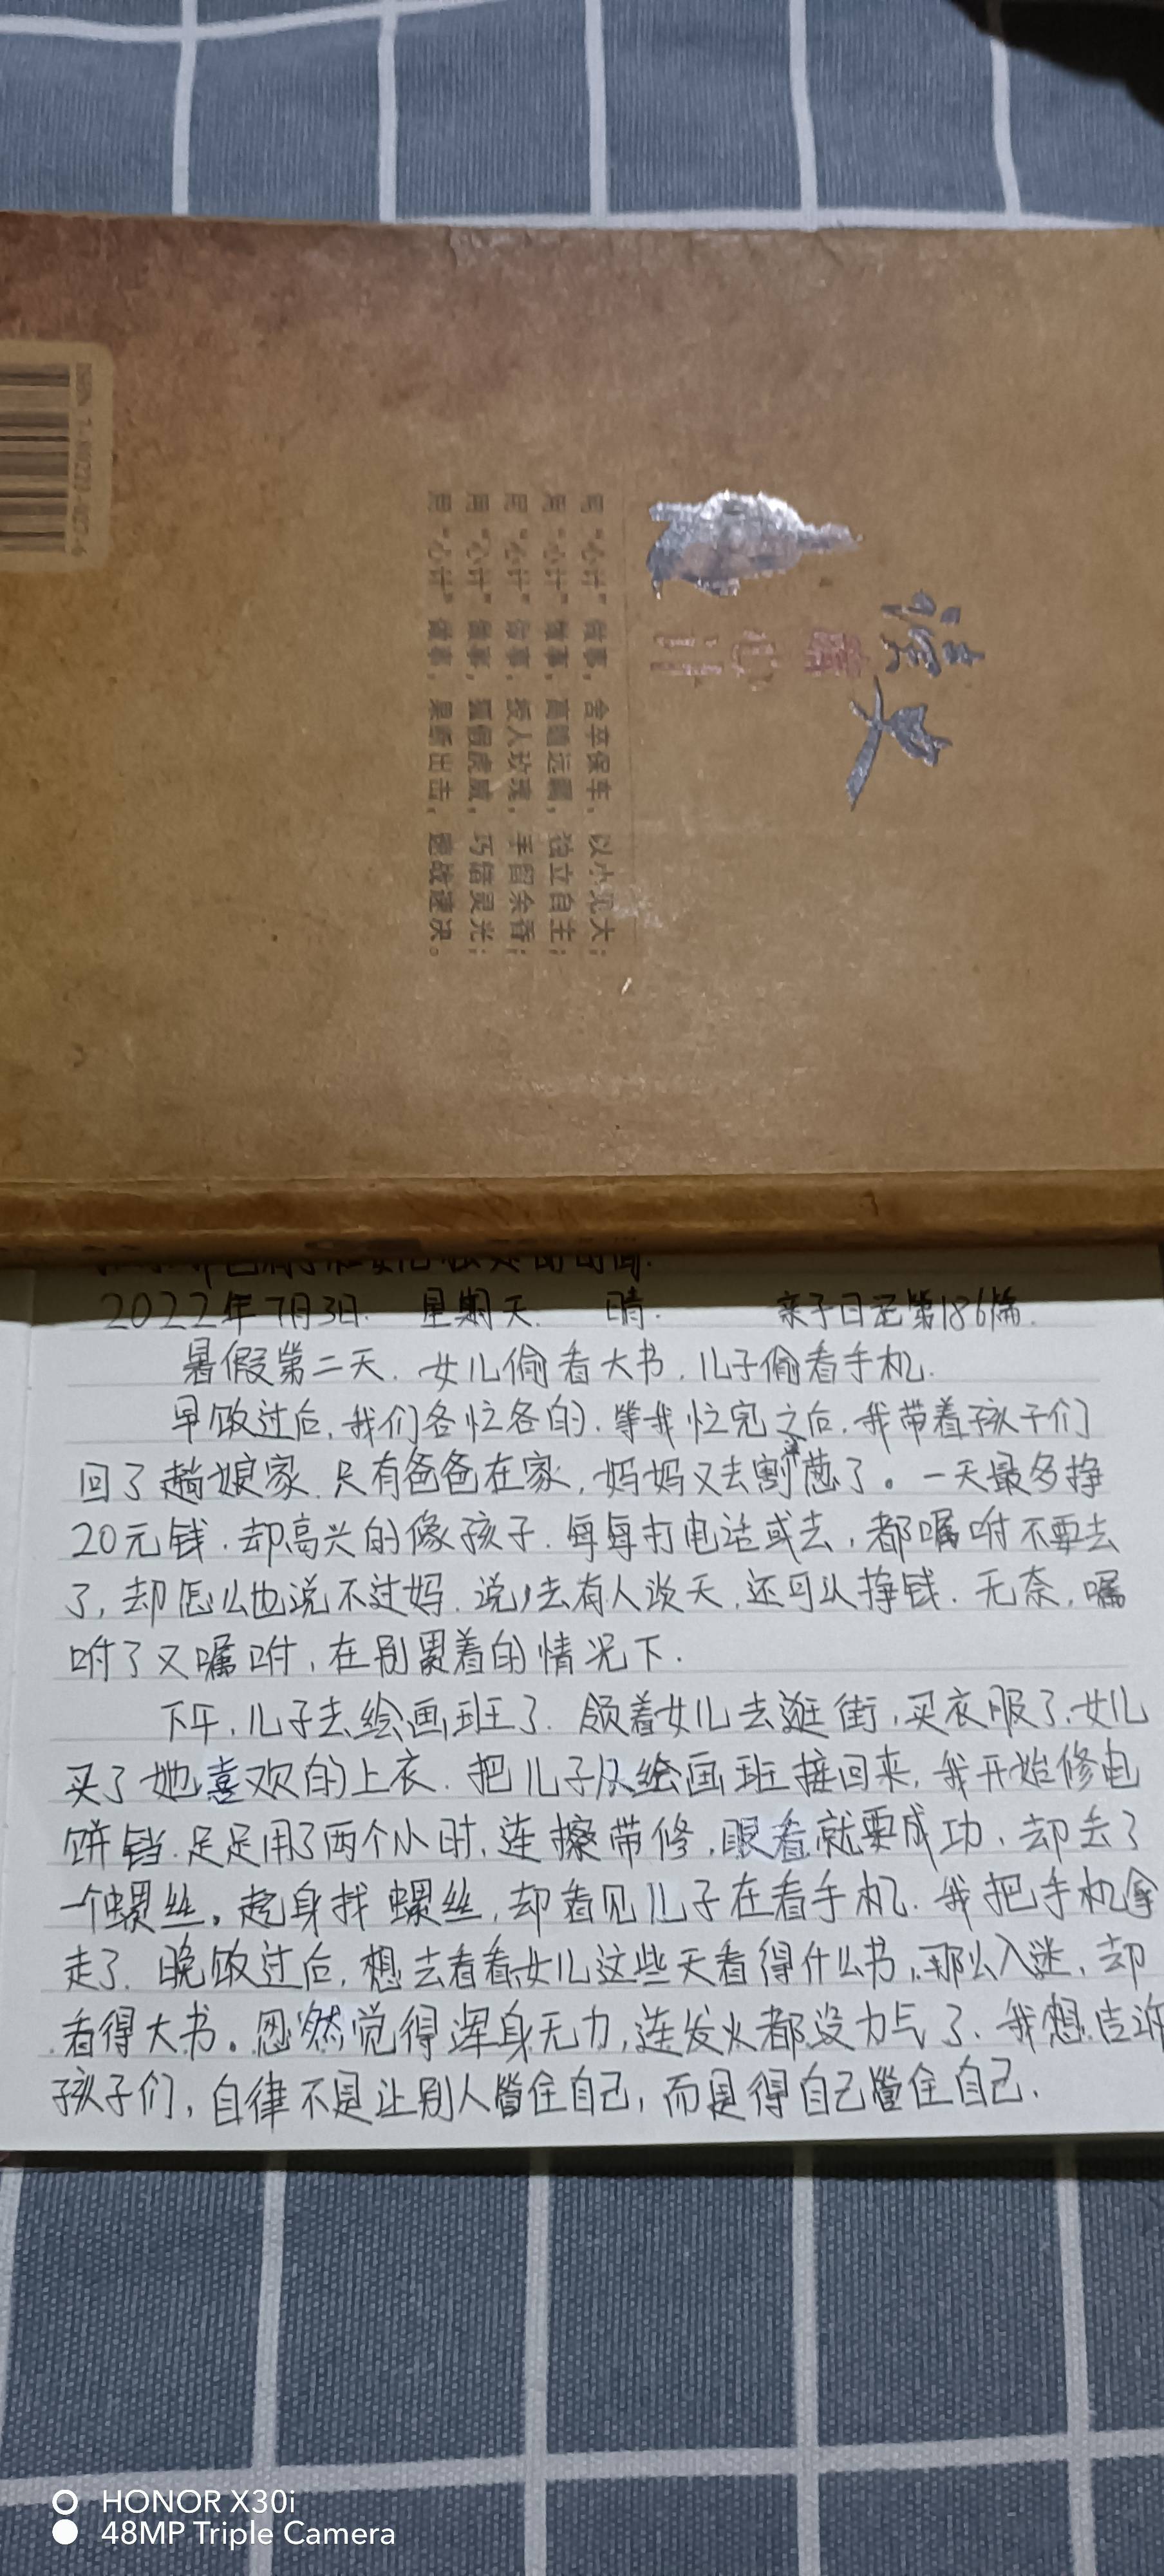 用“心计”做事，舍卒保车，以小见大；
用“心计”做事，高瞻远瞩，独立自主；
用“心计”做事，授人玫瑰，手留余香；
用“心计”做事，狐假虎威，巧借灵光；
用“心计”做事，果断出击，速战速决。
2022年7月3日. 星期天. 晴. 亲子日记第186篇.
暑假第二天. 女儿偷看大书. 儿子偷看手机.
早饭过后, 我们各忙各的. 等我忙完之后. 我带着孩子们
回了趟娘家. 只有爸爸在家, 妈妈又去割葱了。一天最多挣
20元钱. 却高兴的像孩子. 每每打电话或去, 都嘱咐不要去
了, 却怎么也说不过妈. 说, 去有人谈天, 还可以挣钱. 无奈, 嘱
咐了又嘱咐, 在别累着的情况下.
下午, 儿子去绘画班了. 领着女儿去逛街, 买衣服了, 女儿
买了她喜欢的上衣. 把儿子从绘画班接回来, 我开始修电
饼铛. 足足用了两个小时, 连擦带修, 眼看就要成功, 却丢了
一个螺丝。起身找螺丝, 却看见儿子在看手机. 我把手机拿
走了. 晚饭过后, 想去看看女儿这些天看得什么书, 那么入迷, 却
看得大书。忽然觉得浑身无力, 连发火都没力气了. 我想告诉
孩子们, 自律不是让别人管住自己, 而是得自己管住自己.
HONOR X30i
48MP Triple Camera